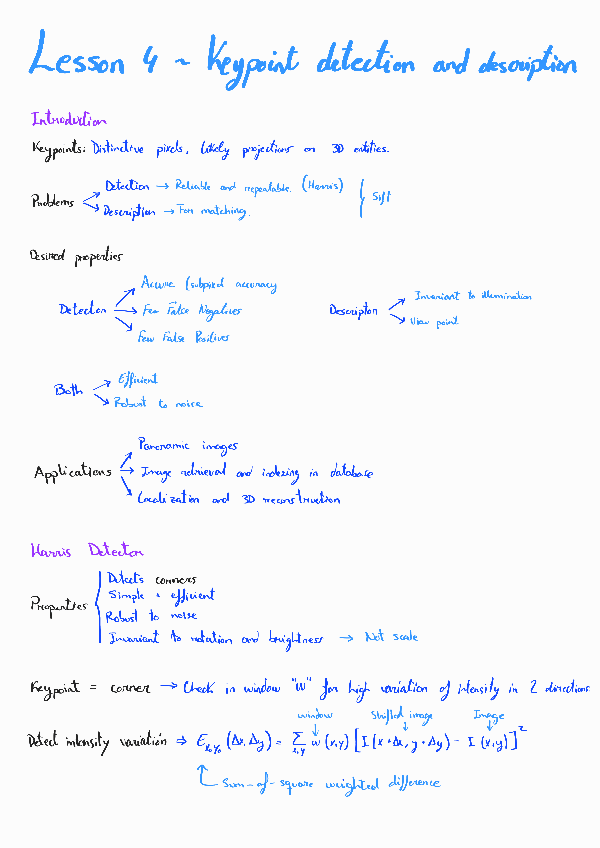 Lesson 4 ~ Keypoint detection and description
Introduction
Keypoints: Distinctive pixels, likely projections on 3D entities.
Problems
Detection → Reliable and repeatable. (Harris)
Description → For matching.
Sift
Desired properties
Detector
Accurate (subpixel accuracy
Few False Negatives
Few False Positives
Descriptor
Invariant to illumination
View point
Both
Efficient
Robust to noise
Applications
Panoramic images
Image retrieval and indexing in database
Localization and 3D reconstruction
Harris Detector
Properties
Detects corners
Simple + efficient
Robust to noise
Invariant to rotation and brightness → Not scale
Keypoint = corner → Check in window "W" for high variation of intensity in 2 directions
window Shifted image Image
Detect intensity variation ⇒ E_{x₀y₀} (Δx, Δy) = Σ_{x,y} w (x,y) [I (x+Δx, y+Δy) - I (x,y)]²
Sum-of-square weighted difference